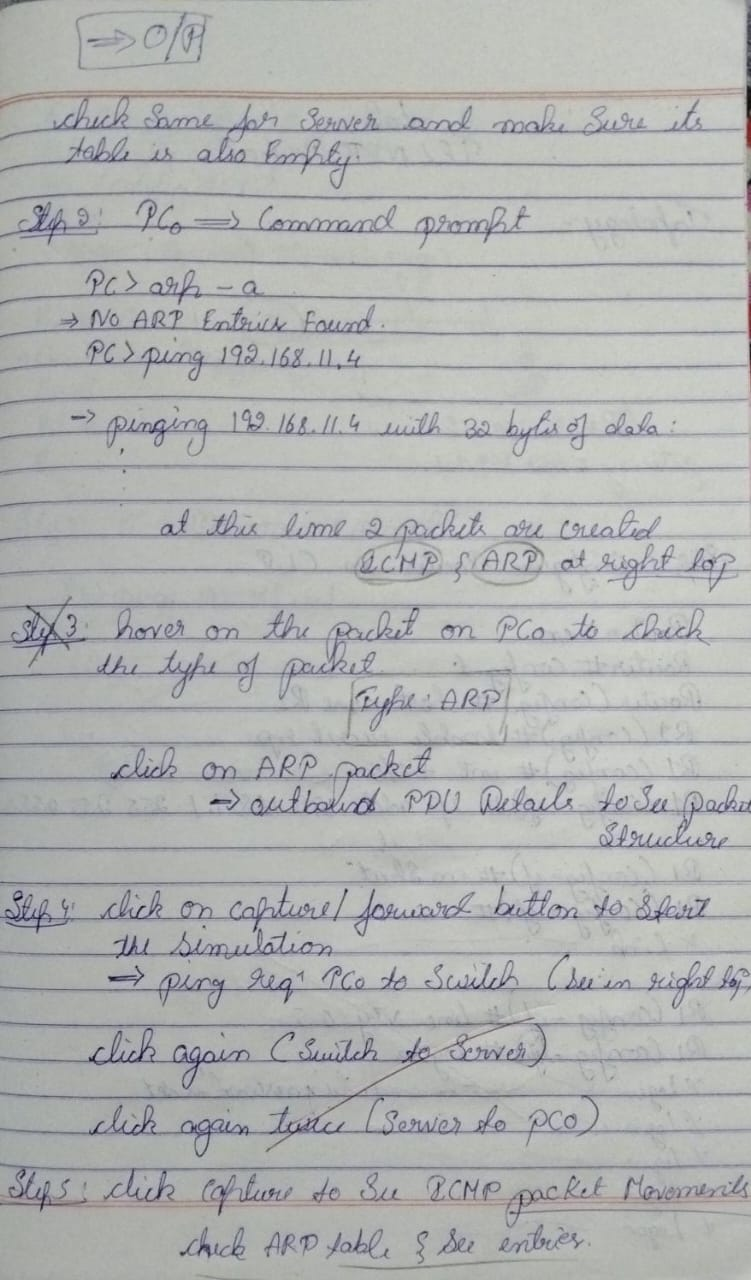 ⇒ O/P
check Same for Server and make Sure its
table is also Empty.
Step 2: PC0 ⇒ Command prompt
PC> arp -a
⇒ No ARP Entries Found.
PC> ping 192.168.11.4
→ pinging 192.168.11.4 with 32 bytes of data:
at this time 2 packets are created
ICMP & ARP at right top
Step 3: hover on the packet on PC0 to check
the type of packet
Type: ARP
click on ARP packet
→ outbound PDU Details to See packet
Structure
Step 4: click on capture/forward button to Start
the Simulation
⇒ ping req PC0 to Switch (See in right top)
click again (Switch to Server)
click again twice (Server to PC0)
Step 5: click Capture to See ICMP packet Movements
check ARP table & See entries.